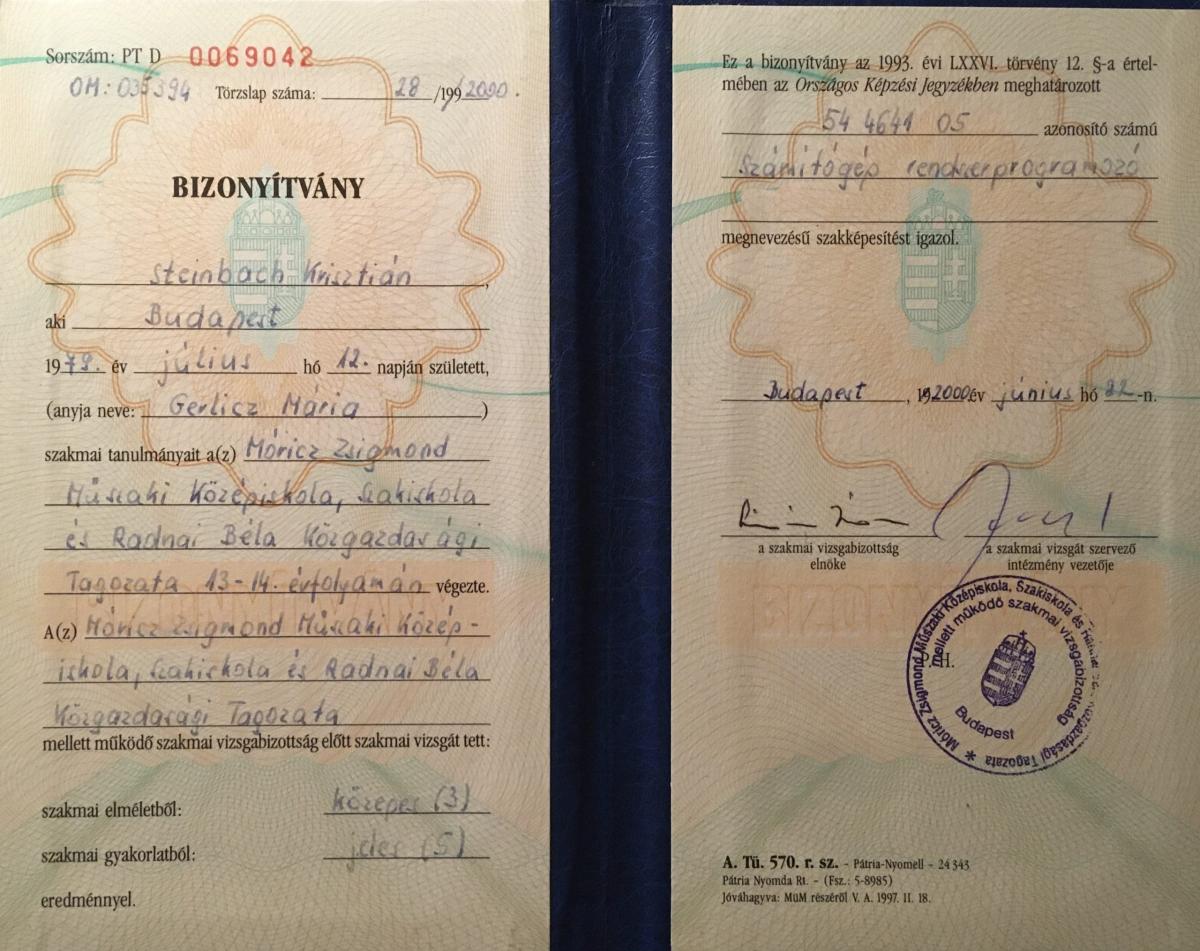 Sorszám: PT D 0069042
OM: 035394 Törzslap száma: 28 /199 2000.
BIZONYÍTVÁNY
Steinbach Krisztián,
aki Budapest
1979. év július hó 12. napján született,
(anyja neve: Gerlicz Mária)
szakmai tanulmányait a(z) Móricz Zsigmond
Műszaki Középiskola, Szakiskola
és Radnai Béla Közgazdasági
Tagozata 13-14. évfolyamán végezte.
A(z) Móricz Zsigmond Műszaki Közép-
iskola, Szakiskola és Radnai Béla
Közgazdasági Tagozata
mellett működő szakmai vizsgabizottság előtt szakmai vizsgát tett:
szakmai elméletből: közepes (3)
szakmai gyakorlatból: jeles (5)
eredménnyel.
Ez a bizonyítvány az 1993. évi LXXVI. törvény 12. §-a értel-
mében az Országos Képzési Jegyzékben meghatározott
54 4641 05 azonosító számú
Számítógép rendszerprogramozó
megnevezésű szakképesítést igazol.
Budapest, 192000 év június hó 22-n.
a szakmai vizsgabizottság
elnöke
a szakmai vizsgát szervező
intézmény vezetője
P. H.
Móricz Zsigmond Műszaki Középiskola, Szakiskola és Közgazdasági Tagozata *
mellett működő szakmai vizsgabizottság
Budapest
A. Tü. 570. r. sz. - Pátria-Nyomell - 24 343
Pátria Nyomda Rt. - (Fsz.: 5-8985)
Jóváhagyva: MüM részéről V. A. 1997. II. 18.